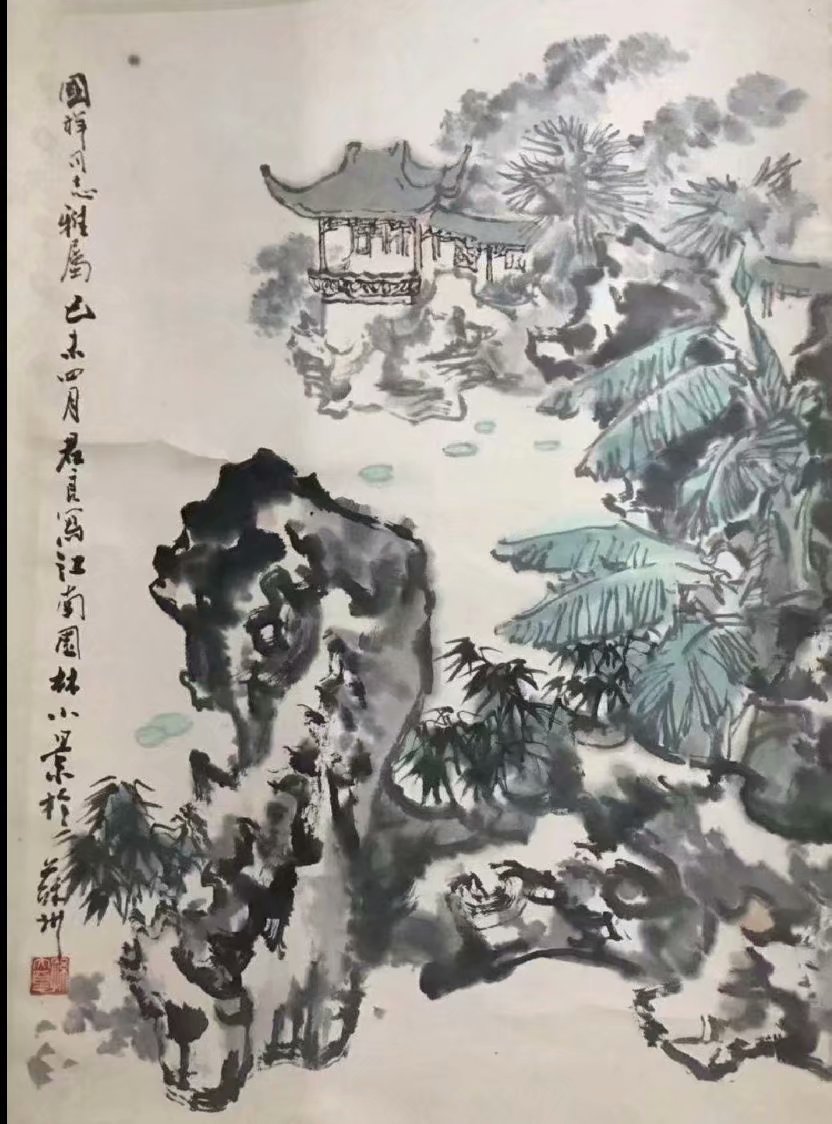 國祥同志雅属己未四月君良寫江南園林小景於蘇州